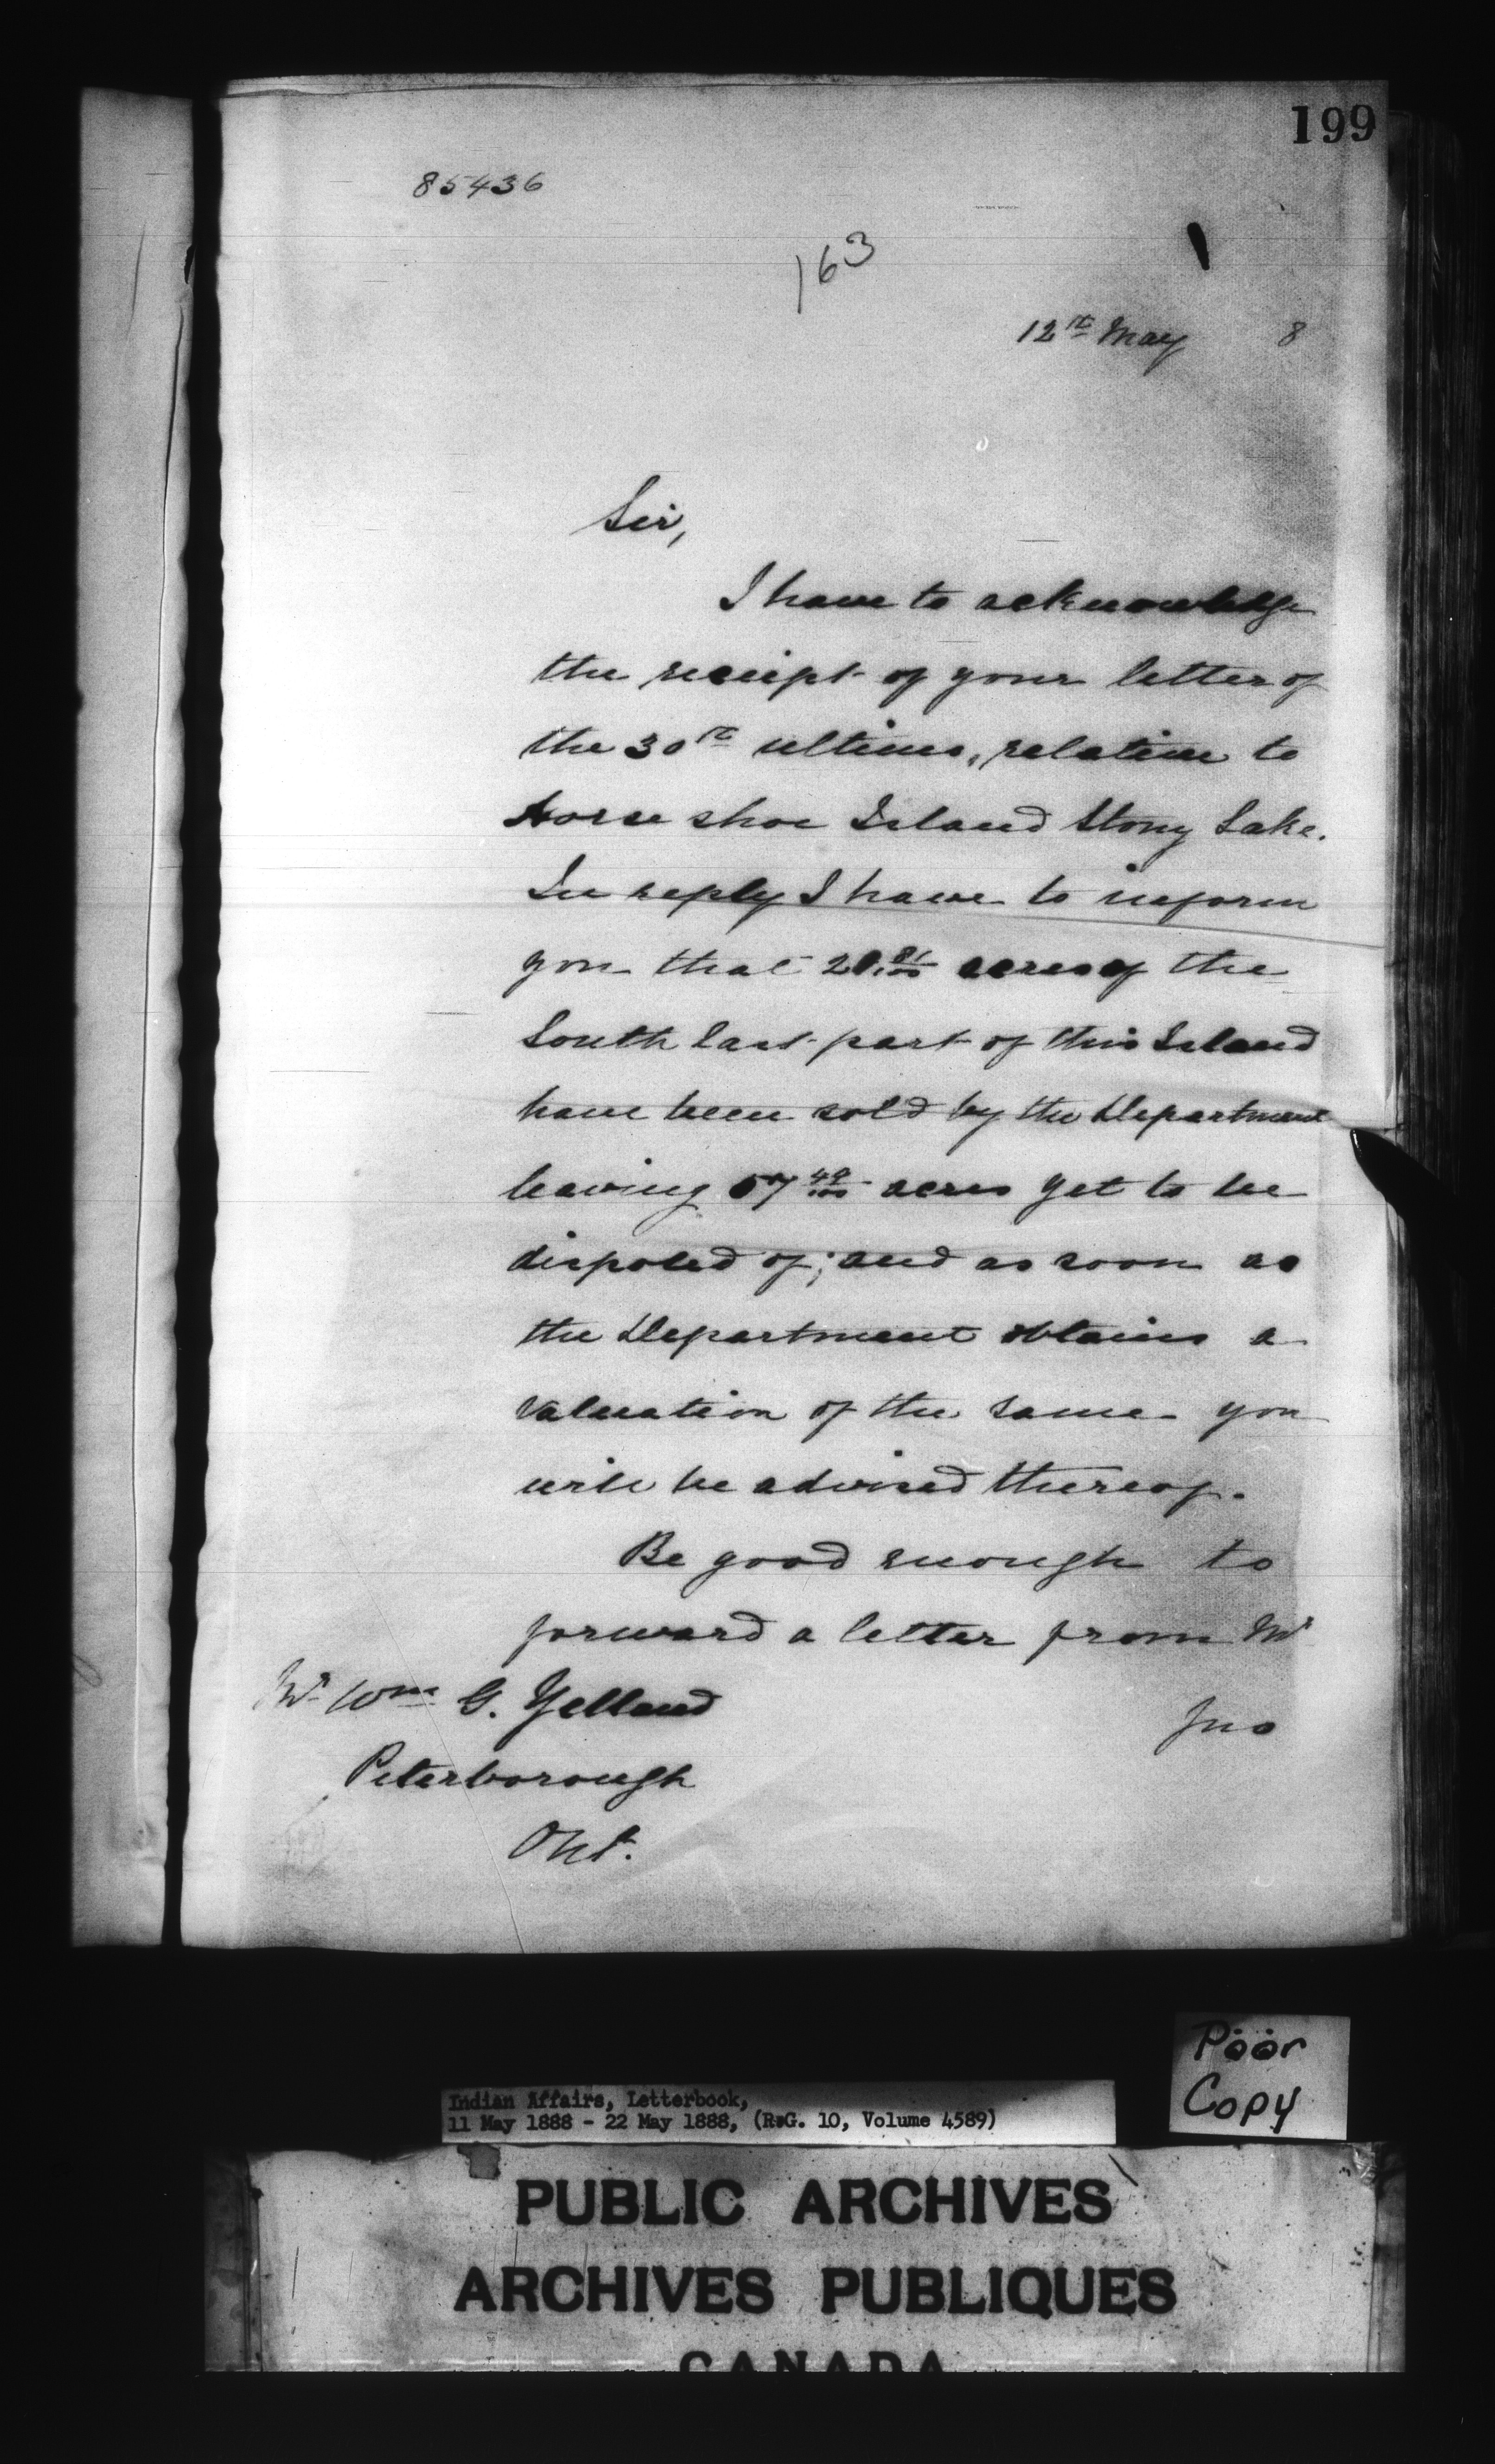 199
85436
163
12th May 8
Sir,
I have to acknowledge
the receipt of your letter of
the 30th ultimo, relative to
Horse shoe Island Stony Lake.
In reply I have to inform
you that 20 81/100 acres of the
South East part of this Island
have been sold by the Department
leaving 57 49/100 acres yet to be
disposed of; and as soon as
the Department obtains a
valuation of the same you
will be advised thereof.
Be good enough to
forward a letter from Mr
Jno
Mr Wm G. Yelland
Peterborough
Ont.
Poor
Copy
Indian Affairs, Letterbook,
11 May 1888 - 22 May 1888, (R.G. 10, Volume 4589)
PUBLIC ARCHIVES
ARCHIVES PUBLIQUES
CANADA